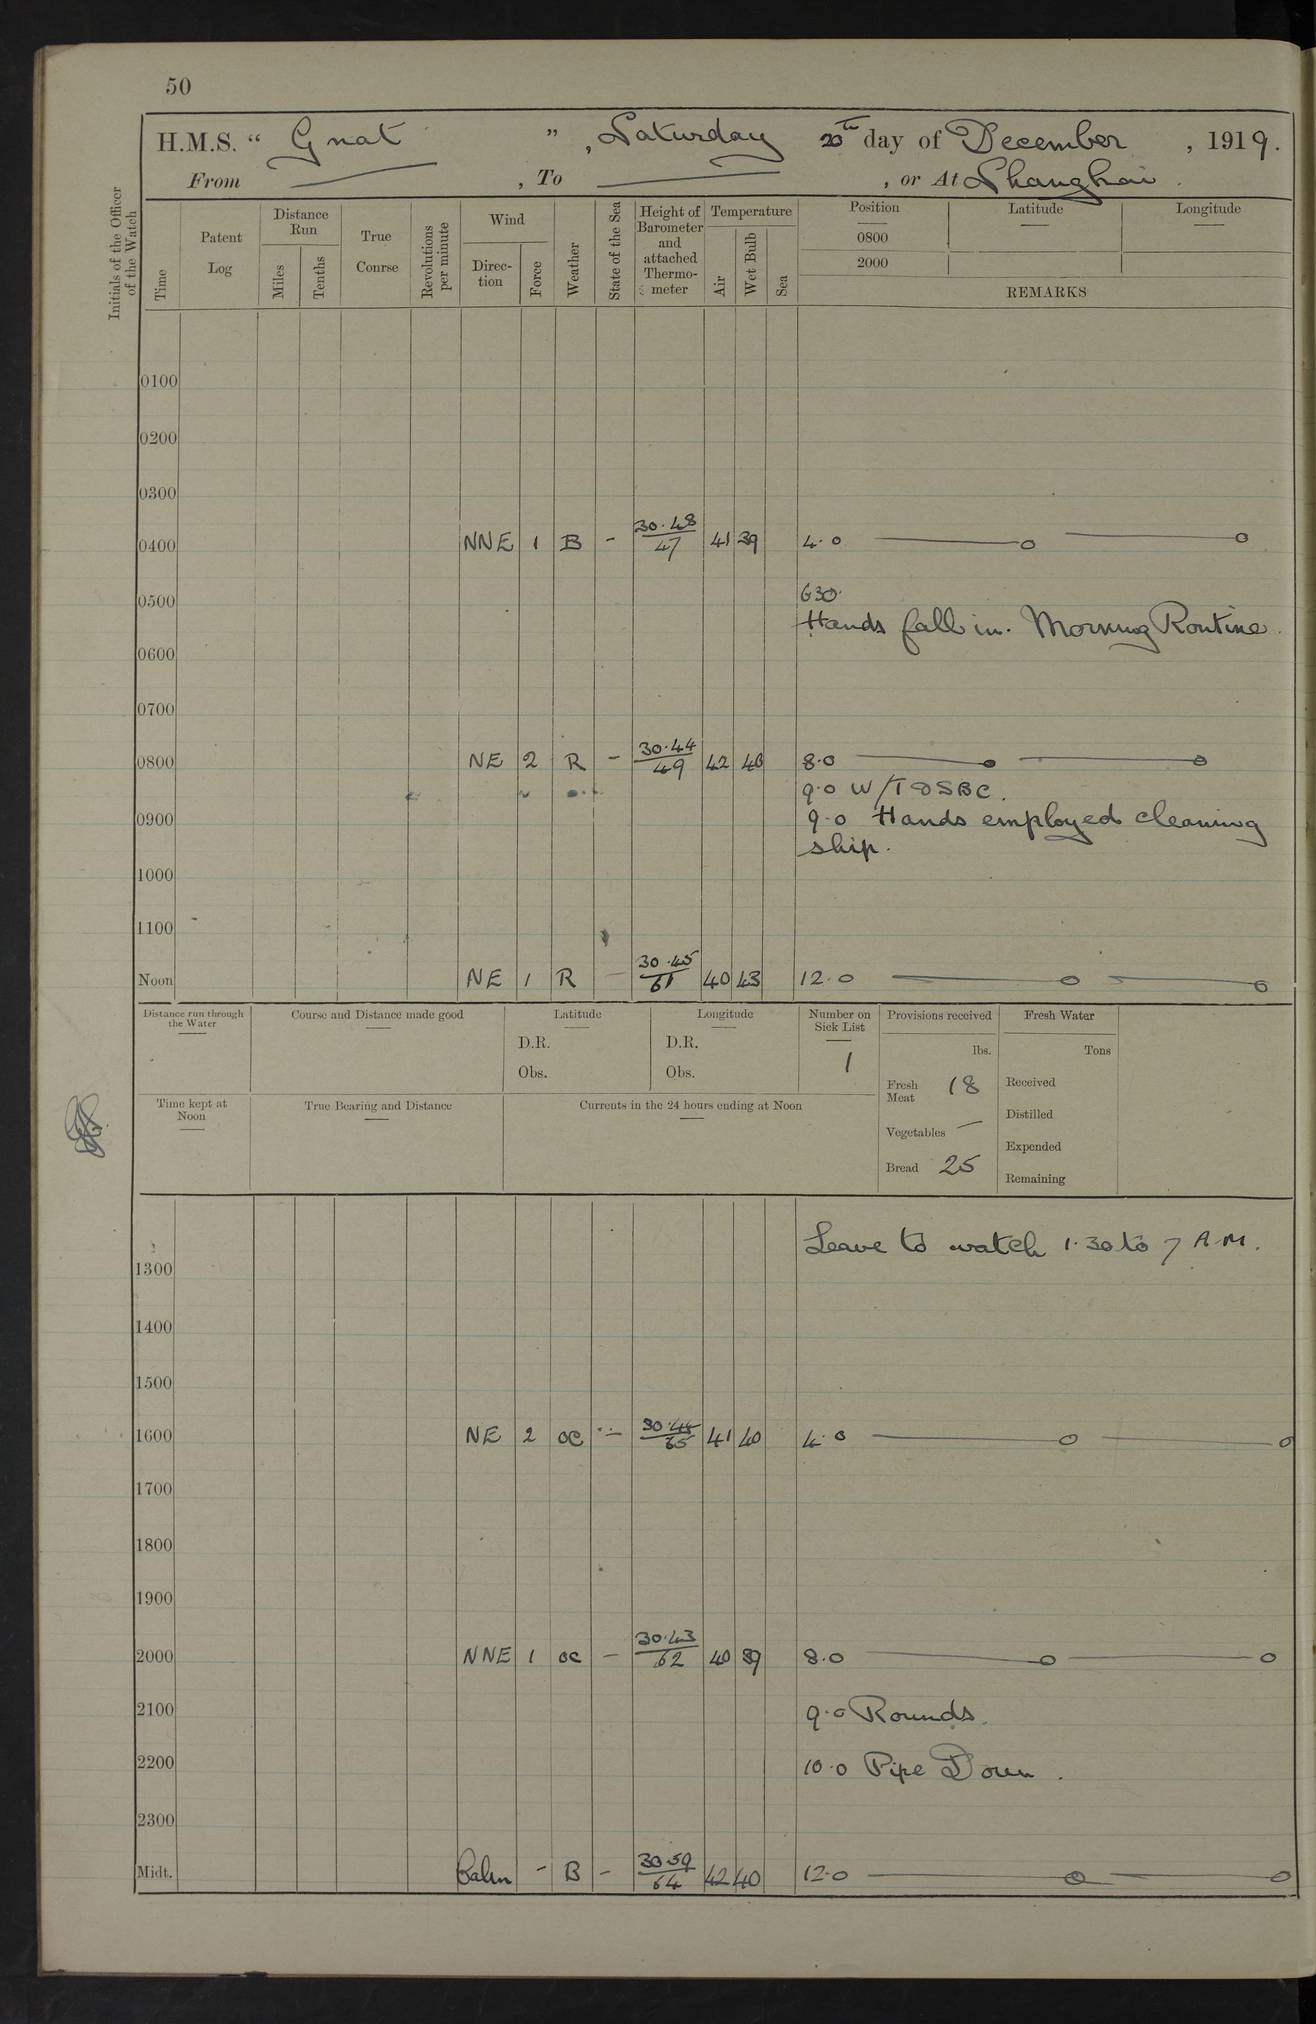 50
H.M.S. “ Gnat ”, Saturday 20th day of December, 1919.
From —— , To —— , or At Shanghai.
Initials of the Officer of the Watch
Time
Patent Log
Distance Run
Miles
Tenths
True Course
Revolutions per minute
Wind
Direc-tion
Force
Weather
State of the Sea
Height of Barometer and attached Thermo-meter
Temperature
Air
Wet Bulb
Sea
Position Latitude Longitude
0800
2000
REMARKS
0100
0200
0300
0400 NNE 1 B - 30.48/47 41 39 4.0 ——o ——o
630.
0500
Hands fall in. Morning Routine.
0600
0700
0800 NE 2 R - 30.44/49 42 40 8.0 ——o ——o
9.0 W/T & SBC.
0900 9.0 Hands employed cleaning
ship.
1000
1100
Noon NE 1 R — 30.45/61 40 43 12.0 ——o ——o
Distance run through the Water
Course and Distance made good
Latitude
D.R.
Obs.
Longitude
D.R.
Obs.
Number on Sick List
1
Provisions received
lbs.
Fresh Meat 18
Vegetables —
Bread 25
Fresh Water
Tons
Received
Distilled
Expended
Remaining
Time kept at Noon
True Bearing and Distance
Currents in the 24 hours ending at Noon
Leave to watch 1.30 to 7 A.M.
1300
1400
1500
1600 NE 2 oc — 30.44/65 41 40 4.0 ——o ——o
1700
1800
1900
2000 NNE 1 oc — 30.43/62 40 39 8.0 ——o ——o
2100 9.0 Rounds.
2200 10.0 Pipe Down.
2300
Midt. Calm - B - 30.59/64 42 40 12.0 ——o ——o